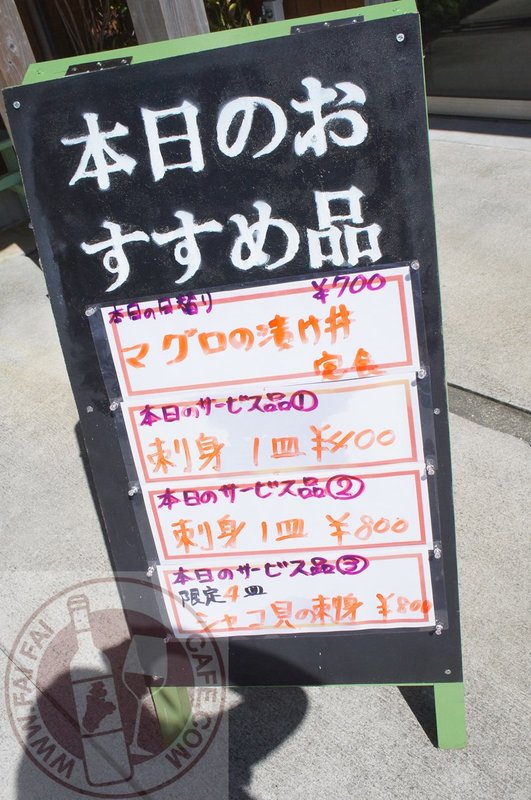 本日のお
すすめ品
本日の日替り ¥700
マグロの漬け丼
定食
本日のサービス品①
刺身 1皿 ¥400
本日のサービス品②
刺身 1皿 ¥800
本日のサービス品③
限定4皿
シャコ貝の刺身 ¥800
WWW.FAI FAI CAFE.COM